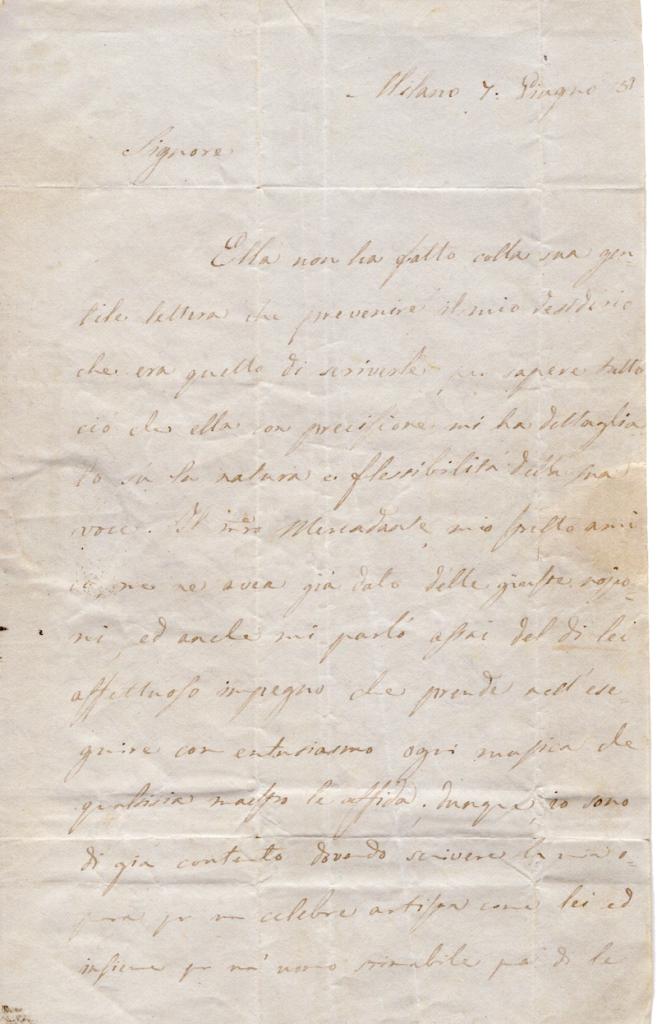 Milano 7. Giugno 31
Signore
Ella non ha fatto colla sua gen-
tile lettera che prevenire il mio desiderio
che era quello di scriverle, per sapere tutto
ciò che ella con precisione mi ha dettaglia
to su la natura e flessibilità della sua
voce. Il mro Mercadante, mio stretto ami
co, me ne avea già dato delle giuste
ni, ed anche mi parlò assai del di lei
affettuoso impegno che prende nell'ese-
guire con entusiasmo ogni musica che
qualsisia maestro le affida. Dunque io sono
di già contento dovendo scrivere la mia o-
pera per un celebre artista come lei ed
insieme per un' uomo stimabile di le